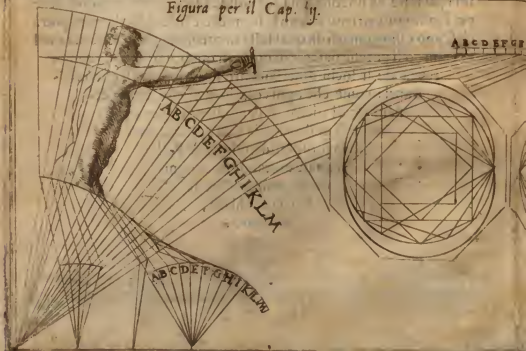 Figura per il Cap. ij.
A B C D E F G
A B C D E F G H I K L M
A B C D E F G H I K L M